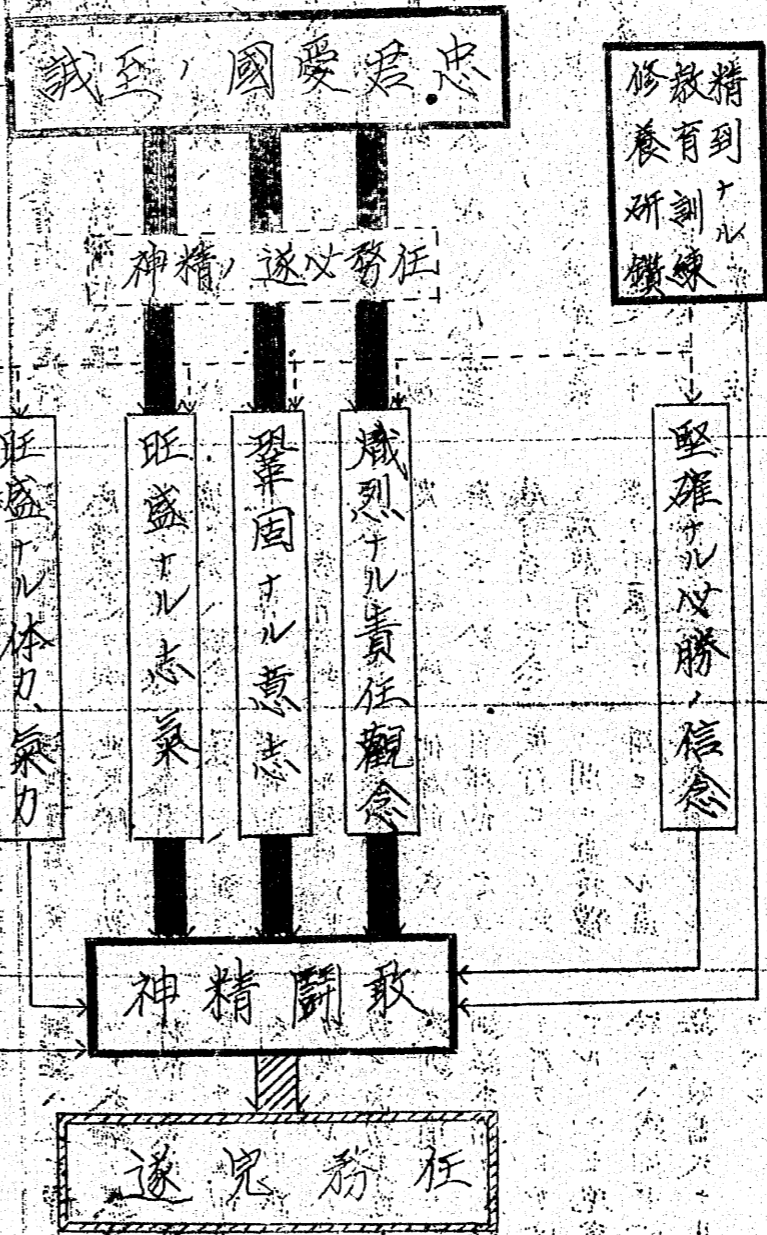 忠君愛國ノ至誠
精到ナル
教育訓練
修養研鑽
任務必遂ノ精神
堅確ナル必勝ノ信念
熾烈ナル責任觀念
鞏固ナル意志
旺盛ナル志氣
旺盛ナル体力、氣力
敢鬪精神
任務完遂